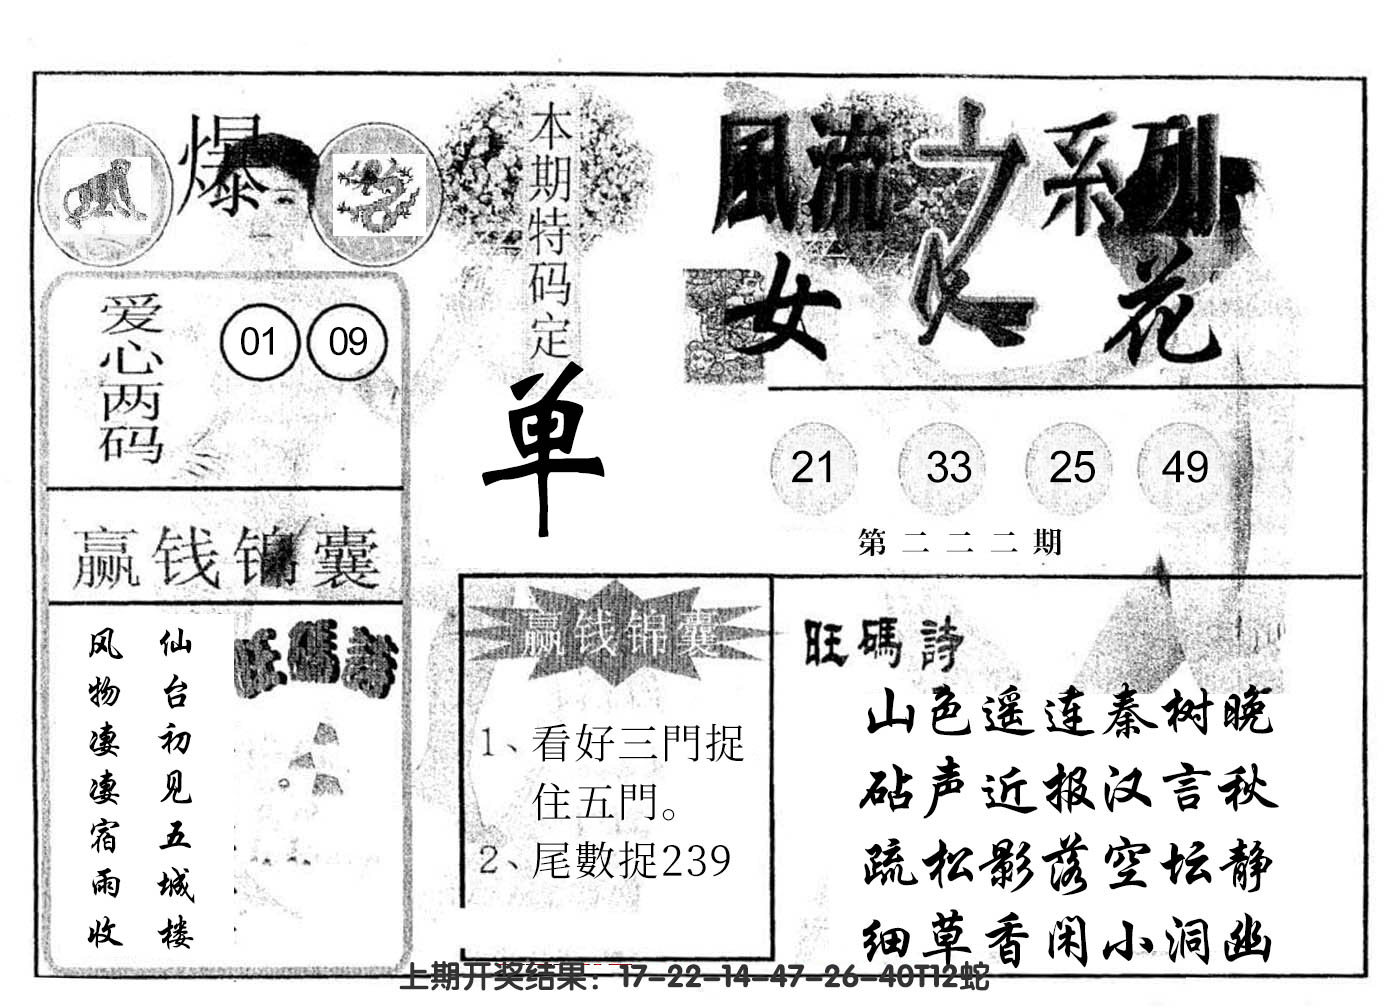 爆
爱心两码
01 09
赢钱锦囊
仙台初见五城楼
风物凄凄宿雨收
旺碼詩
本期特码定
单
風流之系列
女人花
21 33 25 49
第二二二期
赢钱锦囊
1、看好三門捉
住五門。
2、尾數捉239
旺碼詩
山色遥连秦树晚
砧声近报汉言秋
疏松影落空坛静
细草香闲小洞幽
上期开奖结果：17-22-14-47-26-40T12蛇